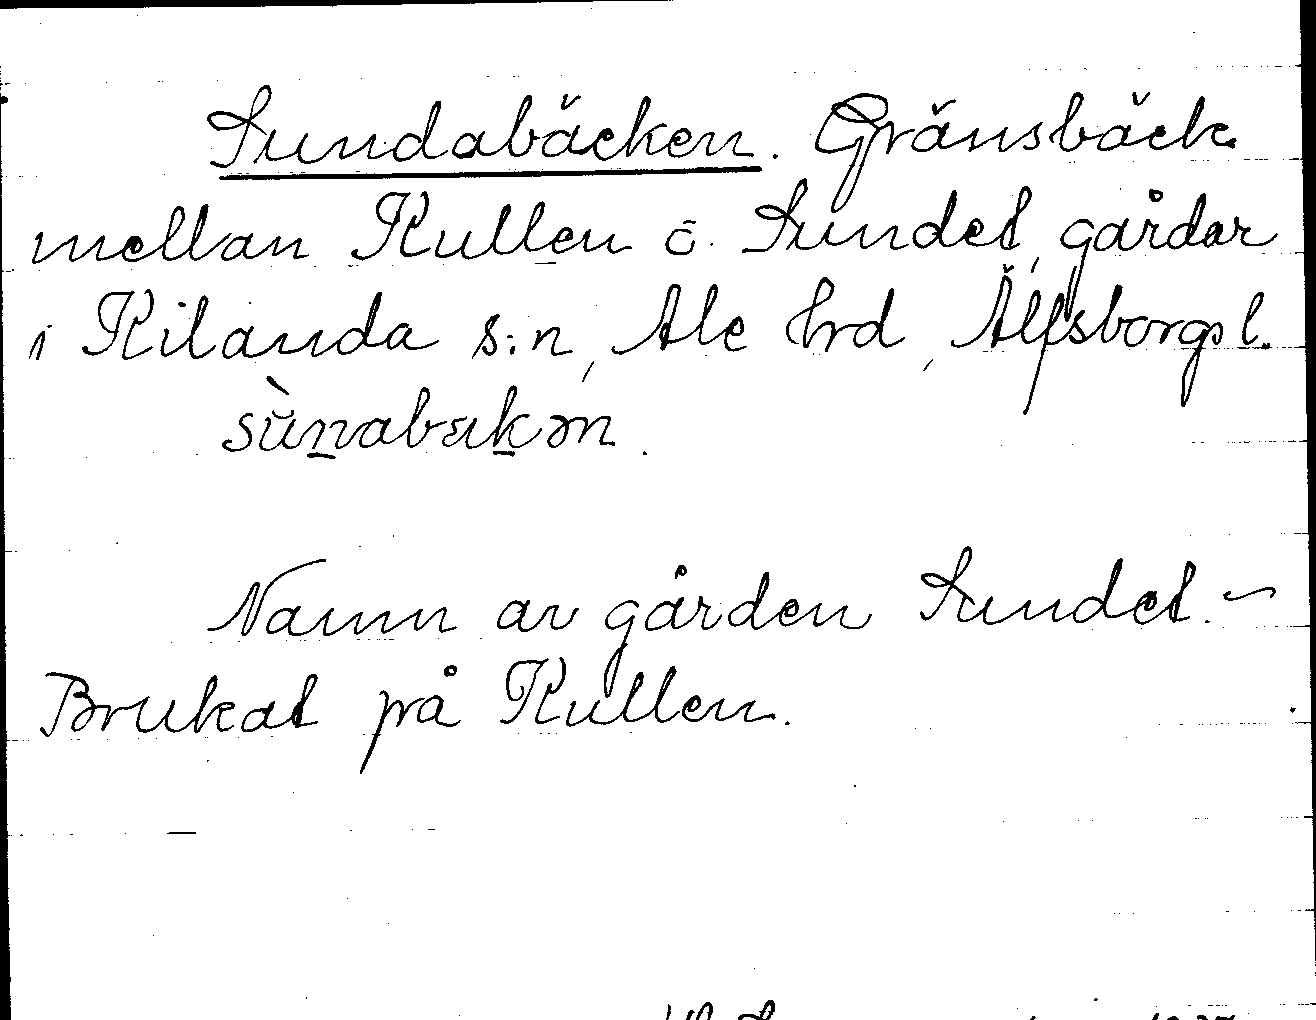 Sundabäcken. Gränsbäck
mellan Kullen o. Sundet, gårdar
i Kilanda s:n, Ale hrd, Älfsborgs l.
sùnabækən.
Namn av gården Sundet. –
Brukat på Kullen.